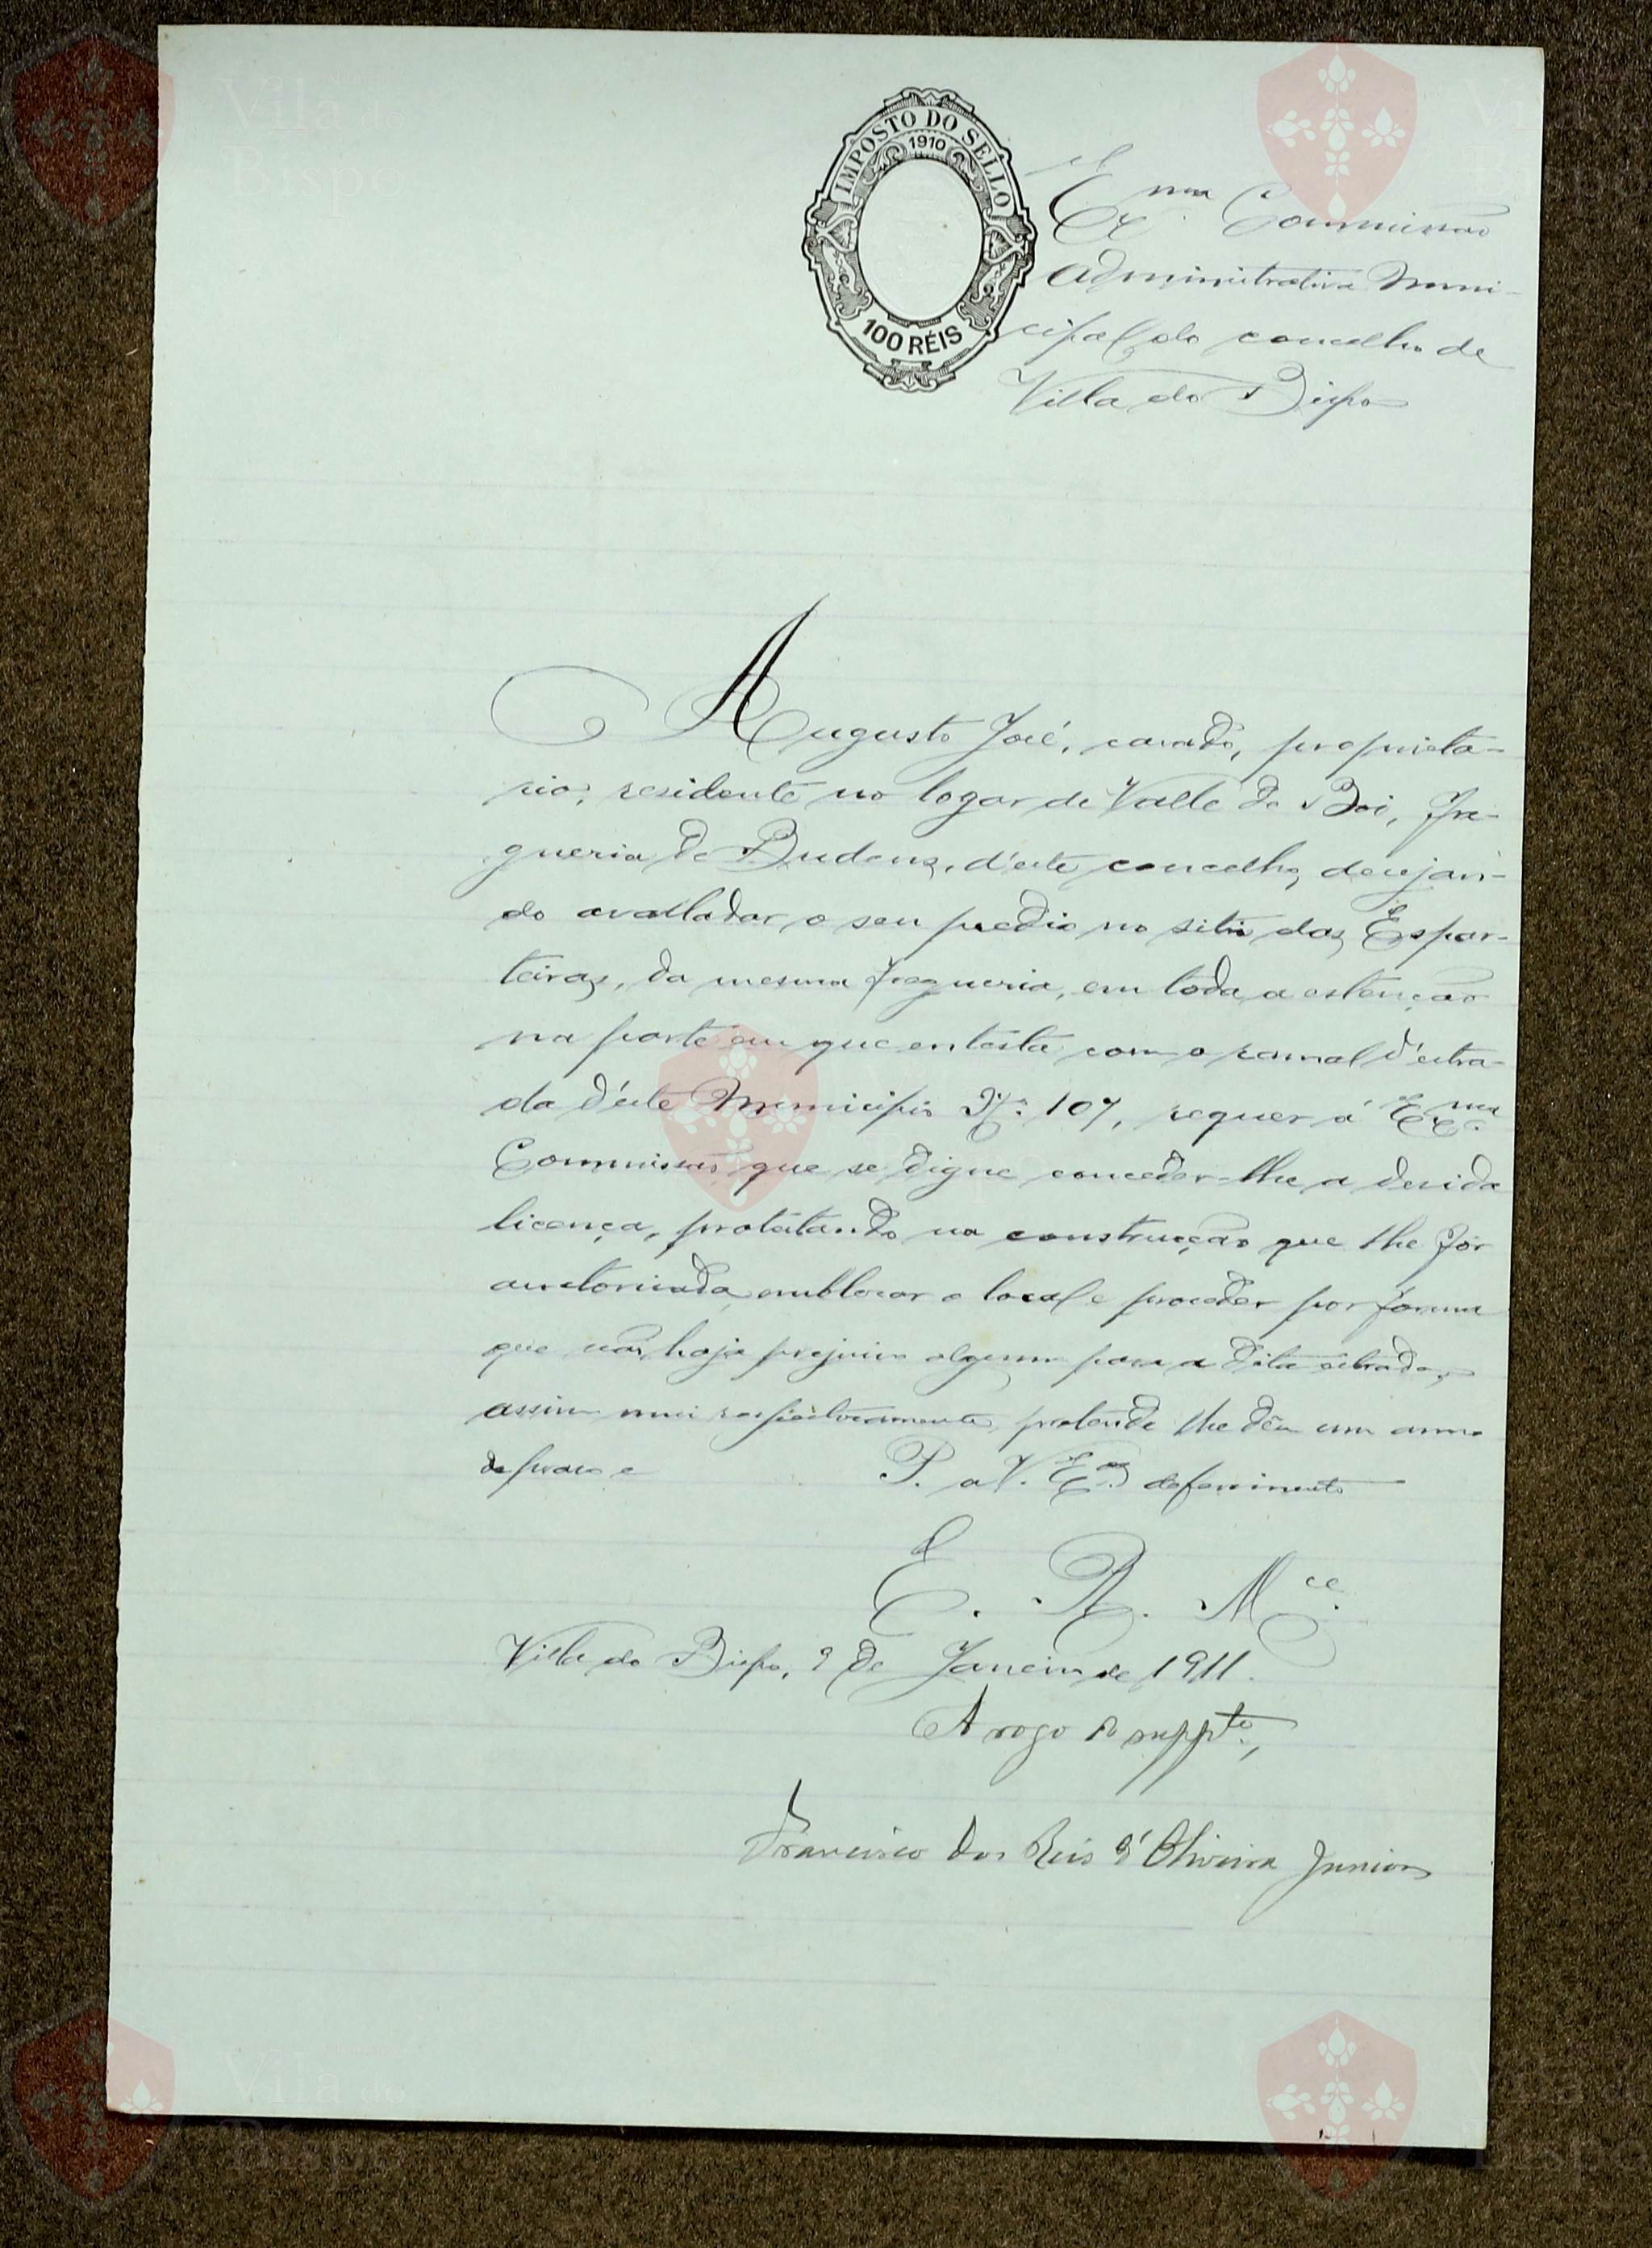 IMPOSTO DO SELLO
1910
100 RÉIS
Ex.ma Commissão
Administrativa Muni-
cipal do concelho de
Villa do Bispo
Augusto José, casado, proprieta-
rio, residente no logar de Valle de Boi, fre-
guesia de Budens, d'este concelho, desejan-
do avalladar o seu predio no sitio das Espar-
teiras, da mesma freguesia, em toda a estenção
na parte em que entesta com o ramal d'estra-
da d'este Municipio N.º 107, requer á Ex.ma
Commissão que se digne conceder-lhe a devida
licença, protestando na construcção que lhe fôr
auctorisada, o local e proceder por fórma
que não haja prejuizo algum para a dita estrada,
assim mui respeitosamente, pretende lhe dêm um anno
de praso e
P. a V. Ex.as deferimento
E. R. M.ce
Villa do Bispo, 9 de Janeiro de 1911.
A rogo do supp.te,
Francisco dos Reis d'Oliveira Junior
Vila do
Bispo